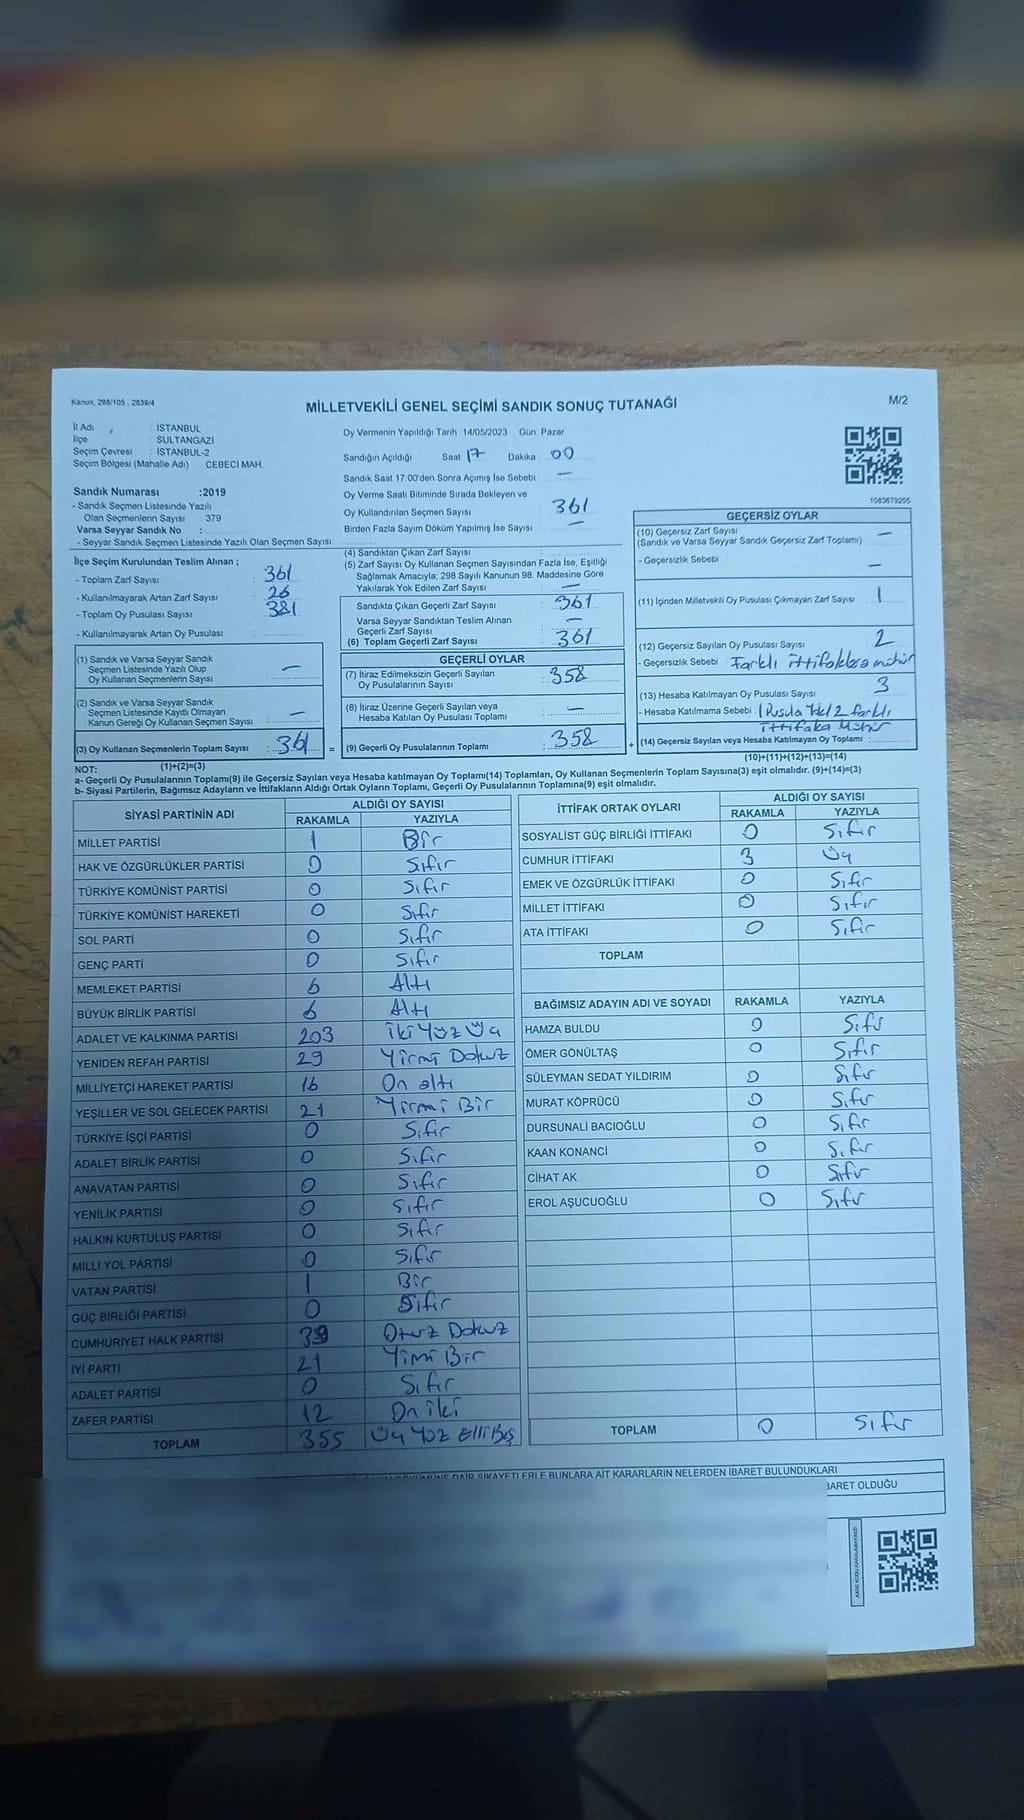 Kanun, 298/105 , 2839/4
MİLLETVEKİLİ GENEL SEÇİMİ SANDIK SONUÇ TUTANAĞI
M/2
İl Adı : İSTANBUL
İlçe : SULTANGAZİ
Seçim Çevresi : İSTANBUL-2
Seçim Bölgesi (Mahalle Adı) : CEBECİ MAH.
Sandık Numarası :2019
- Sandık Seçmen Listesinde Yazılı
Olan Seçmenlerin Sayısı : 379
Varsa Seyyar Sandık No :
- Seyyar Sandık Seçmen Listesinde Yazılı Olan Seçmen Sayısı:
Oy Vermenin Yapıldığı Tarih 14/05/2023 Gün: Pazar
Sandığın Açıldığı Saat 17 Dakika 00
Sandık Saat 17:00'den Sonra Açılmış İse Sebebi : —
Oy Verme Saati Bitiminde Sırada Bekleyen ve
Oy Kullandırılan Seçmen Sayısı : 361
Birden Fazla Sayım Döküm Yapılmış İse Sayısı : —
1083679255
İlçe Seçim Kurulundan Teslim Alınan ;
- Toplam Zarf Sayısı : 361
- Kullanılmayarak Artan Zarf Sayısı : 26
- Toplam Oy Pusulası Sayısı : 381
- Kullanılmayarak Artan Oy Pusulası :
(1) Sandık ve Varsa Seyyar Sandık
Seçmen Listesinde Yazılı Olup
Oy Kullanan Seçmenlerin Sayısı : —
(2) Sandık ve Varsa Seyyar Sandık
Seçmen Listesinde Kayıtlı Olmayan
Kanun Gereği Oy Kullanan Seçmen Sayısı : —
(3) Oy Kullanan Seçmenlerin Toplam Sayısı : 361 =
(1)+(2)=(3)
(4) Sandıktan Çıkan Zarf Sayısı :
(5) Zarf Sayısı Oy Kullanan Seçmen Sayısından Fazla İse, Eşitliği
Sağlamak Amacıyla; 298 Sayılı Kanunun 98. Maddesine Göre
Yakılarak Yok Edilen Zarf Sayısı : —
Sandıkta Çıkan Geçerli Zarf Sayısı : 361
Varsa Seyyar Sandıktan Teslim Alınan
Geçerli Zarf Sayısı : —
(6) Toplam Geçerli Zarf Sayısı : 361
GEÇERLİ OYLAR
(7) İtiraz Edilmeksizin Geçerli Sayılan
Oy Pusulalarının Sayısı : 358
(8) İtiraz Üzerine Geçerli Sayılan veya
Hesaba Katılan Oy Pusulası Toplamı : —
(9) Geçerli Oy Pusulalarının Toplamı : 358 +
GEÇERSİZ OYLAR
(10) Geçersiz Zarf Sayısı : —
(Sandık ve Varsa Seyyar Sandık Geçersiz Zarf Toplamı)
- Geçersizlik Sebebi : —
(11) İçinden Milletvekili Oy Pusulası Çıkmayan Zarf Sayısı : 1
(12) Geçersiz Sayılan Oy Pusulası Sayısı : 2
- Geçersizlik Sebebi : Farklı ittifaklara mühür
(13) Hesaba Katılmayan Oy Pusulası Sayısı : 3
- Hesaba Katılmama Sebebi : 1 Pusula 2 farklı
ittifaka Mühür
(14) Geçersiz Sayılan veya Hesaba Katılmayan Oy Toplamı :
(10)+(11)+(12)+(13)=(14)
NOT:
a- Geçerli Oy Pusulalarının Toplamı(9) ile Geçersiz Sayılan veya Hesaba katılmayan Oy Toplamı(14) Toplamları, Oy Kullanan Seçmenlerin Toplam Sayısına(3) eşit olmalıdır. (9)+(14)=(3)
b- Siyasi Partilerin, Bağımsız Adayların ve İttifakların Aldığı Ortak Oyların Toplamı, Geçerli Oy Pusulalarının Toplamına(9) eşit olmalıdır.
SİYASİ PARTİNİN ADI ALDIĞI OY SAYISI
RAKAMLA YAZIYLA
MİLLET PARTİSİ 1 Bir
HAK VE ÖZGÜRLÜKLER PARTİSİ 0 Sıfır
TÜRKİYE KOMÜNİST PARTİSİ 0 Sıfır
TÜRKİYE KOMÜNİST HAREKETİ 0 Sıfır
SOL PARTİ 0 Sıfır
GENÇ PARTİ 0 Sıfır
MEMLEKET PARTİSİ 6 Altı
BÜYÜK BİRLİK PARTİSİ 6 Altı
ADALET VE KALKINMA PARTİSİ 203 İki Yüz Üç
YENİDEN REFAH PARTİSİ 29 Yirmi Dokuz
MİLLİYETÇİ HAREKET PARTİSİ 16 On altı
YEŞİLLER VE SOL GELECEK PARTİSİ 21 Yirmi Bir
TÜRKİYE İŞÇİ PARTİSİ 0 Sıfır
ADALET BİRLİK PARTİSİ 0 Sıfır
ANAVATAN PARTİSİ 0 Sıfır
YENİLİK PARTİSİ 0 Sıfır
HALKIN KURTULUŞ PARTİSİ 0 Sıfır
MİLLİ YOL PARTİSİ 0 Sıfır
VATAN PARTİSİ 1 Bir
GÜÇ BİRLİĞİ PARTİSİ 0 Sıfır
CUMHURİYET HALK PARTİSİ 39 Otuz Dokuz
İYİ PARTİ 21 Yimi Bir
ADALET PARTİSİ 0 Sıfır
ZAFER PARTİSİ 12 On iki
TOPLAM 355 Üç Yüz Elli Beş
İTTİFAK ORTAK OYLARI ALDIĞI OY SAYISI
RAKAMLA YAZIYLA
SOSYALİST GÜÇ BİRLİĞİ İTTİFAKI 0 Sıfır
CUMHUR İTTİFAKI 3 Üç
EMEK VE ÖZGÜRLÜK İTTİFAKI 0 Sıfır
MİLLET İTTİFAKI 0 Sıfır
ATA İTTİFAKI 0 Sıfır
TOPLAM
BAĞIMSIZ ADAYIN ADI VE SOYADI RAKAMLA YAZIYLA
HAMZA BULDU 0 Sıfır
ÖMER GÖNÜLTAŞ 0 Sıfır
SÜLEYMAN SEDAT YILDIRIM 0 Sıfır
MURAT KÖPRÜCÜ 0 Sıfır
DURSUNALİ BACIOĞLU 0 Sıfır
KAAN KONANCİ 0 Sıfır
CİHAT AK 0 Sıfır
EROL AŞUCUOĞLU 0 Sıfır
TOPLAM 0 Sıfır
DAİR ŞİKAYETLERLE BUNLARA AİT KARARLARIN NELERDEN İBARET BULUNDUKLARI
BARET OLDUĞU